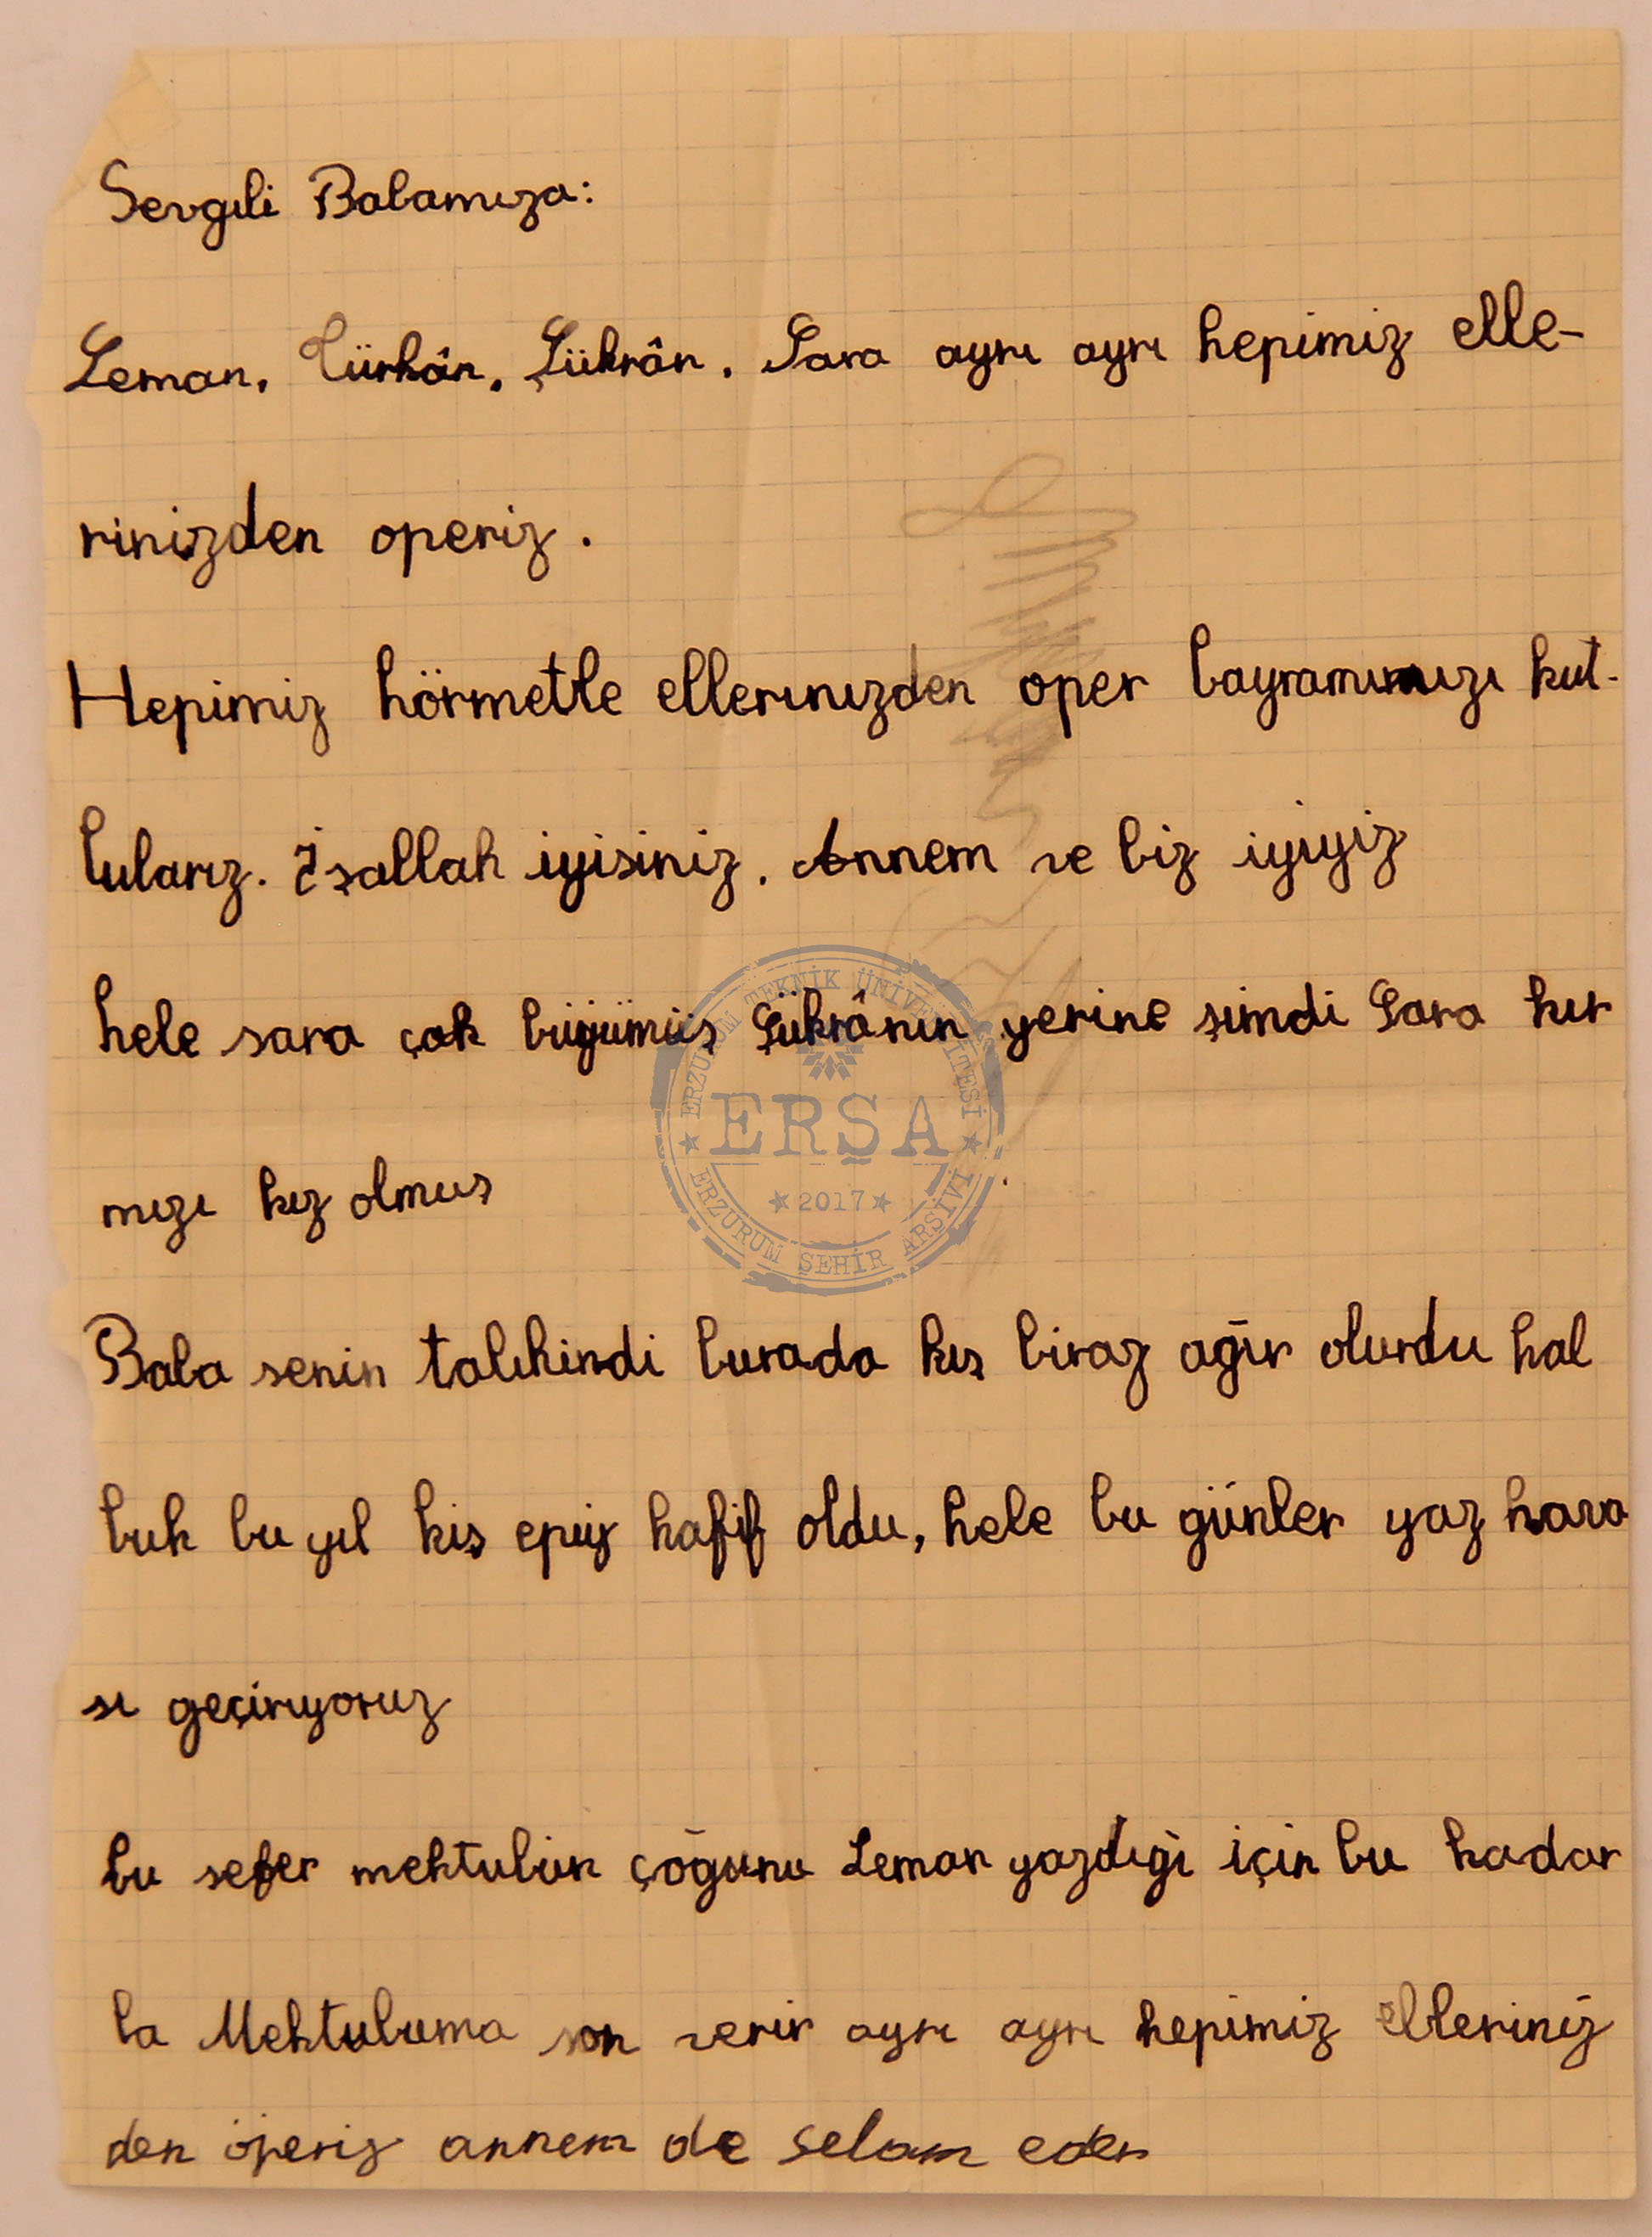 Sevgıli Babamıza:
Leman, Türkân, Şükrân, Sara ayrı ayrı hepimiz elle-
rinizden operiz.
Hepimiz hörmetle ellerınızden oper bayramımızı kut-
lularız. İşallah iyisiniz. Annem ve biz iyıyiz
hele sara çok büyümüş Şükrânın yerine şımdi Sara kır
mızı kız olmuş
Baba senin talıhindi burada kış biraz ağır olurdu hal
buk bu yıl kiş epiy hafif oldu, hele bu günler yaz hava
sı geçirıyoruz
bu sefer mektubun çoğunu Leman yazdıği için bu kadar
la Mektubuma son verir ayrı ayrı hepimiz elleriniz
den öperiz annem de selam eder
ERZURUM TEKNİK ÜNİVERSİTESİ
ERŞA
2017
ERZURUM ŞEHİR ARŞİVİ